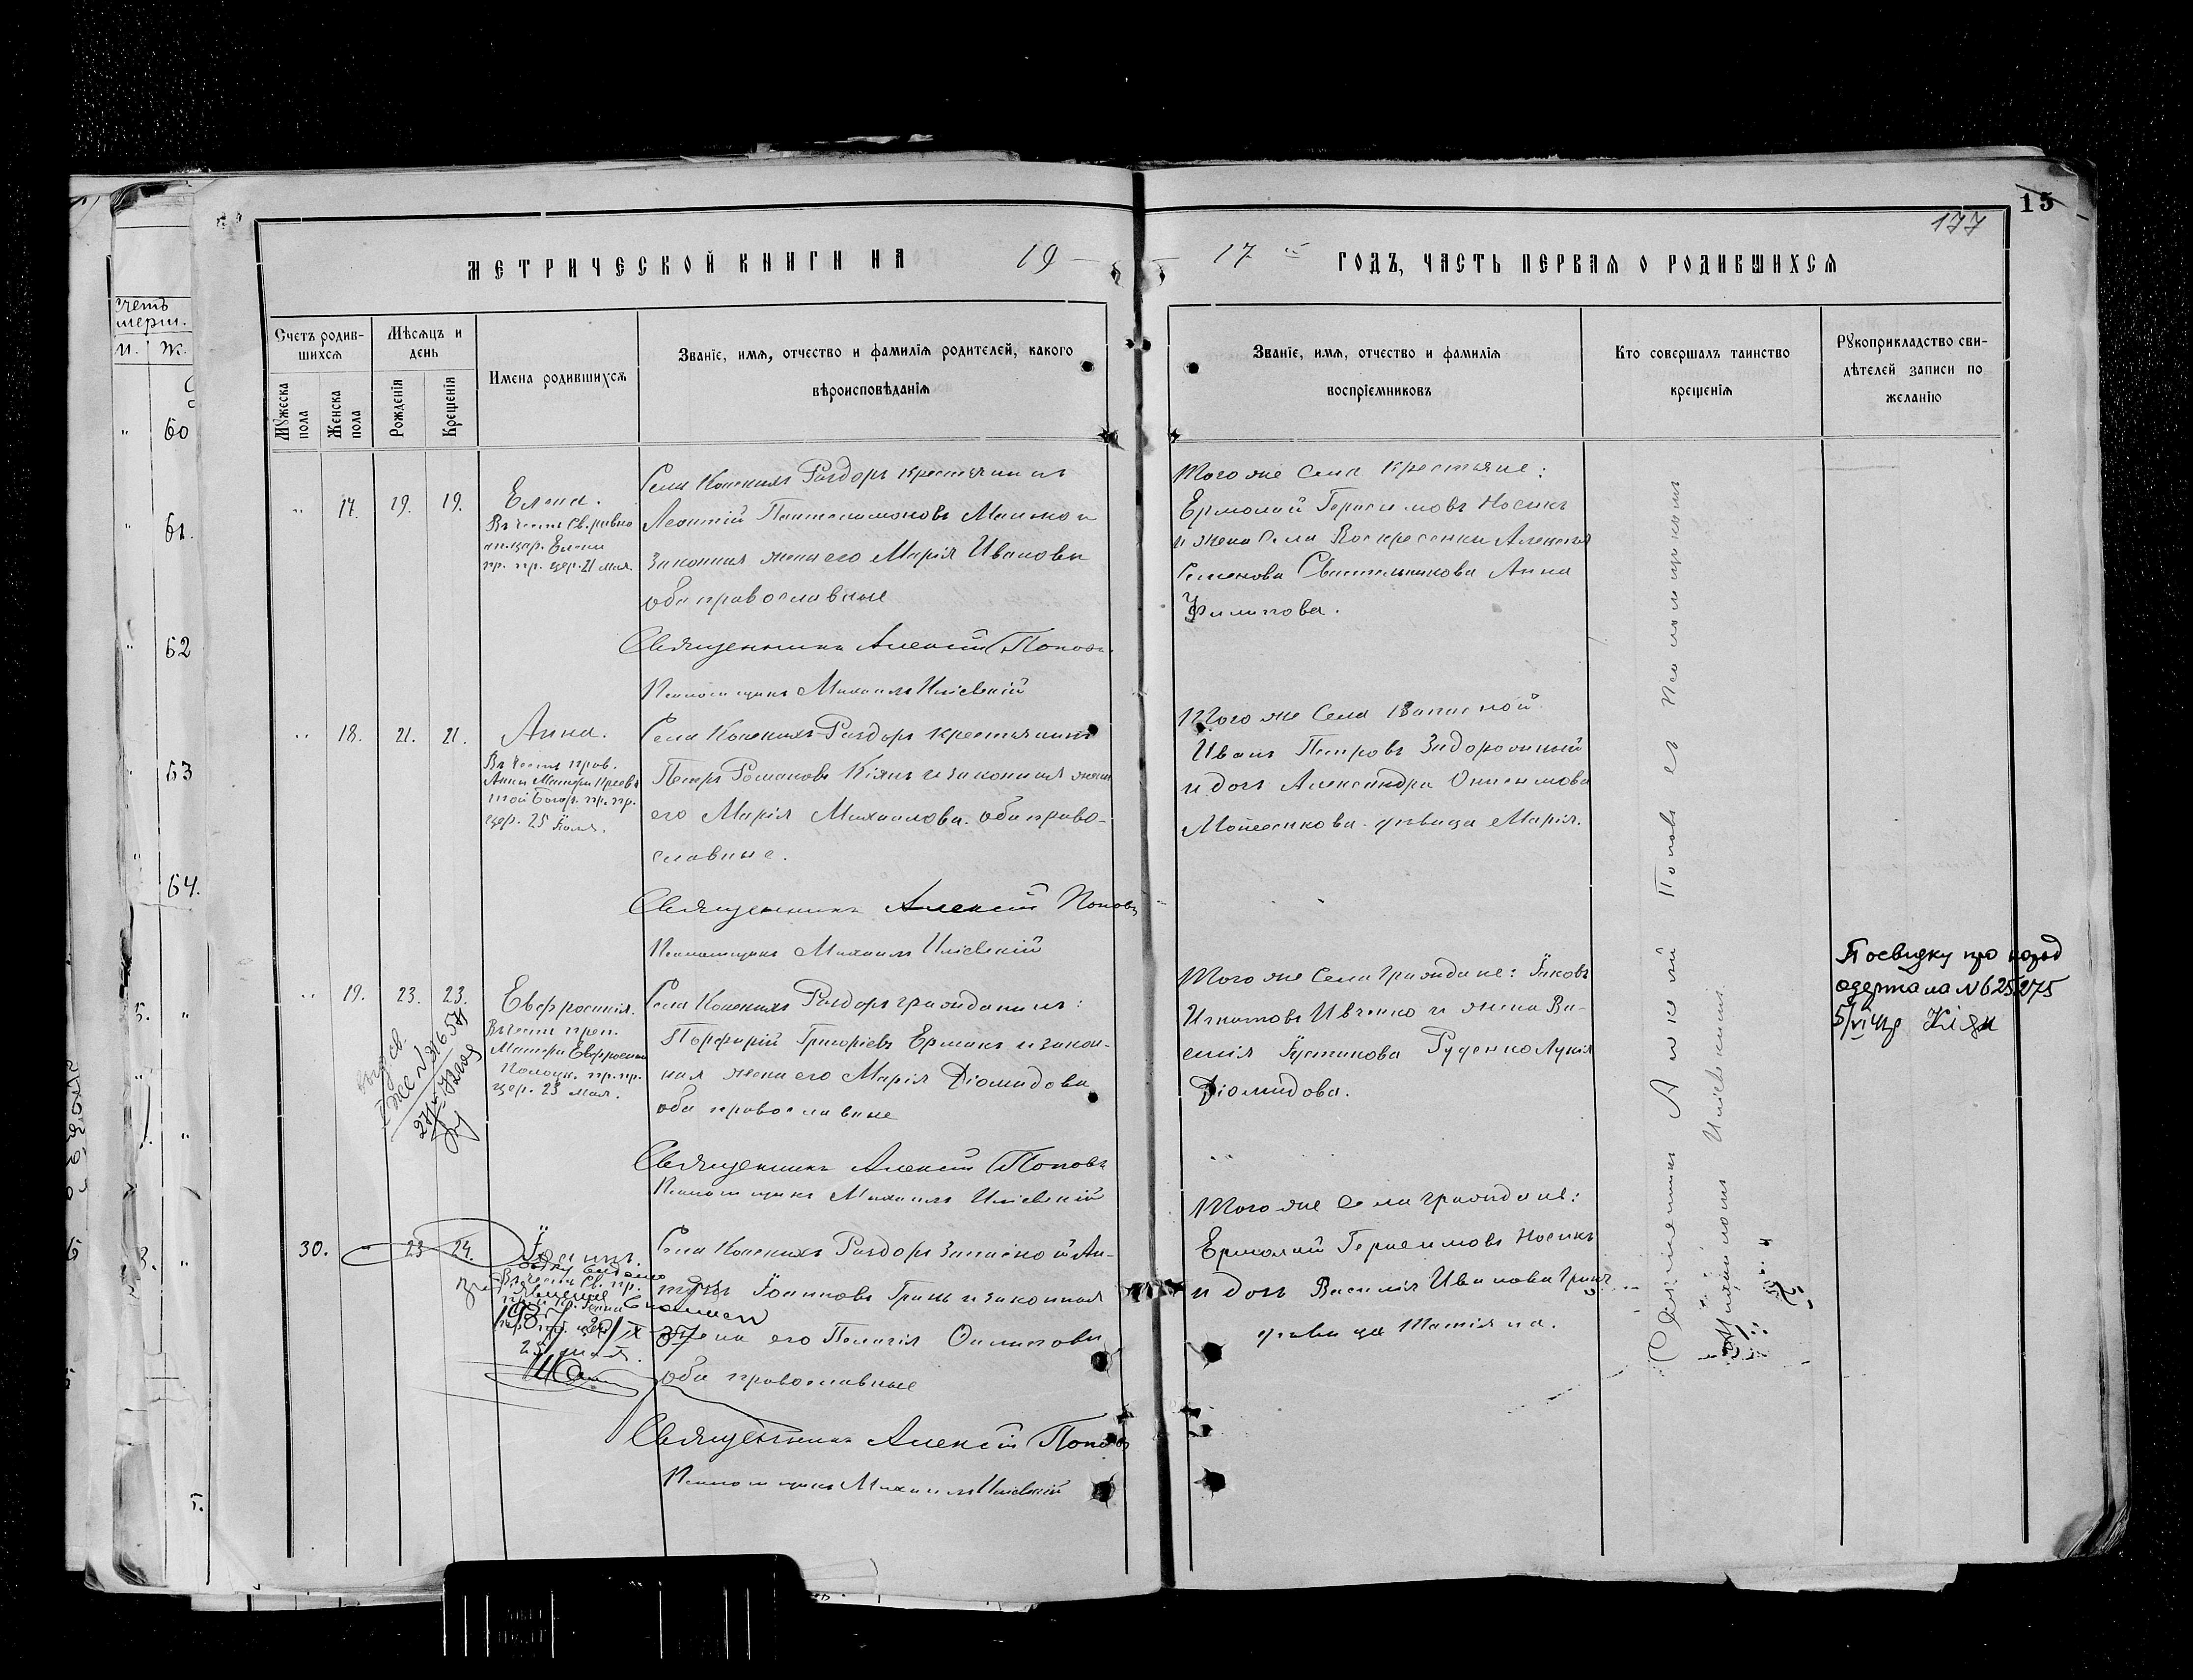 15
177
МЕТРИЧЕСКОЙ КНИГИ НА 19
17 ГОДЪ, ЧАСТЬ ПЕРВАЯ О РОДИВШИХСЯ
Счетъ родив-
шихся
Мѣсяцъ и
день
Имена родившихся
Званіе, имя, отчество и фамилія родителей, какого
вѣроисповѣданія
Мужеска
пола
Женска
пола
Рожденія
Крещенія
Званіе, имя, отчество и фамилія
воспріемниковъ
Кто совершалъ таинство
крещенія
Рукоприкладство сви-
дѣтелей записи по
желанію
Счетъ
мерт.
Ж.
60
61.
62
63
64.
17. 19. 19.
Елена.
Въ честь Св. равно
ап. цар. Елены
пр. пр. цер. 21 мая
Села Конскихъ Раздоръ крестьянинъ
Леонтій Пантелимоновъ Малько и
законная жена его Марія Иванова
оба православные
Священникъ Алексій Поповъ
Псаломщикъ Михаилъ Иліевскій
Того же Села крестьяне:
Ермолай Герасимовъ Носикъ
и жена Села Воскресенки Алексѣя
Семенова Светельникова Анна
Филипова.
18. 21. 21.
Анна.
Въ честь прав.
Анны Матери Пресвя
той Богор. пр. пр.
цер. 25 Іюля.
Села Конскихъ Раздоръ крестьянинъ
Петръ Романовъ Кіянъ и законная жена
его Марія Михаилова. оба право-
славные.
Священникъ Алексій Поповъ
Псаломщикъ Михаилъ Иліевскій
Того же Села Запасной
Иванъ Петровъ Задорожный
и дочь Александра Онисимова
Мойсенкова дѣвица Марія.
19. 23. 23.
Евфросинія.
Въ честь преп.
Матери Евфросиніи
Полоцк. пр. пр.
цер. 23 мая.
Села Конскихъ Раздоръ гражданинъ:
Порфирій Григоріевъ Ермакъ и закон-
ная жена его Марія Діомидова
оба православные
Священникъ Алексій Поповъ
Псаломщикъ Михаилъ Иліевскій
Того же Села граждане: Іяковъ
Игнатовъ Ивченко и жена Ва-
силія Іустинова Руденко Лукія
Діомидова.
Посвідку про народ
одержала № 625275
5/VI 41р Кіян
30. 23 24.
Іоаннъ.
Въ честь Св. пр.
25 мая.
Села Конскихъ Раздоръ Запасной Ан-
Іоанновъ Гринь и законная
жена его Пелагія Филипова
оба православные
Священникъ Алексій Поповъ
Псаломщикъ Михаилъ Иліевскій
Того же Села граждане:
Ермолай Герасимовъ Носикъ
и дочь Василія Иванова Гринь
дѣвица Татіяна.
Священникъ Алексій Поповъ съ псаломщикомъ
Михаиломъ Иліевскимъ